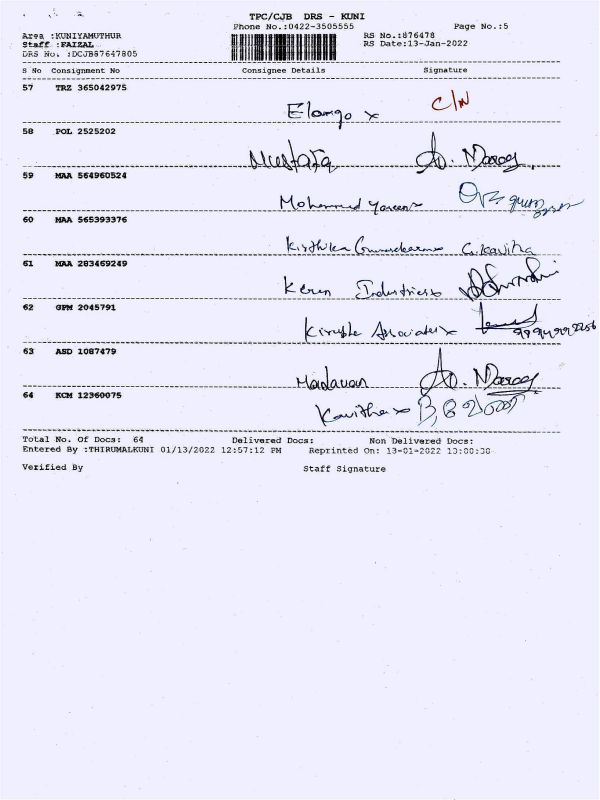 TPC/CJB DRS - KUNI
Phone No.:0422-3505555 Page No.:5
Area :KUNIYAMUTHUR RS No.:876478
Staff :FAIZAL RS Date:13-Jan-2022
DRS No. :DCJB87647805
S No Consignment No Consignee Details Signature
57 TRZ 365042975
Elango x C/N
58 POL 2525202
Mustafa A. Maray
59 MAA 564960524
Mohammed
60 MAA 565393376
Kirthika G. Kavitha
61 MAA 283469249
Keren Industries
62 GPM 2045791
Associates
63 ASD 1087479
Madavan A. Maray
64 KCM 12360075
Kavitha
Total No. Of Docs: 64 Delivered Docs: Non Delivered Docs:
Entered By :THIRUMALKUNI 01/13/2022 12:57:12 PM Reprinted On: 13-01-2022
Verified By Staff Signature